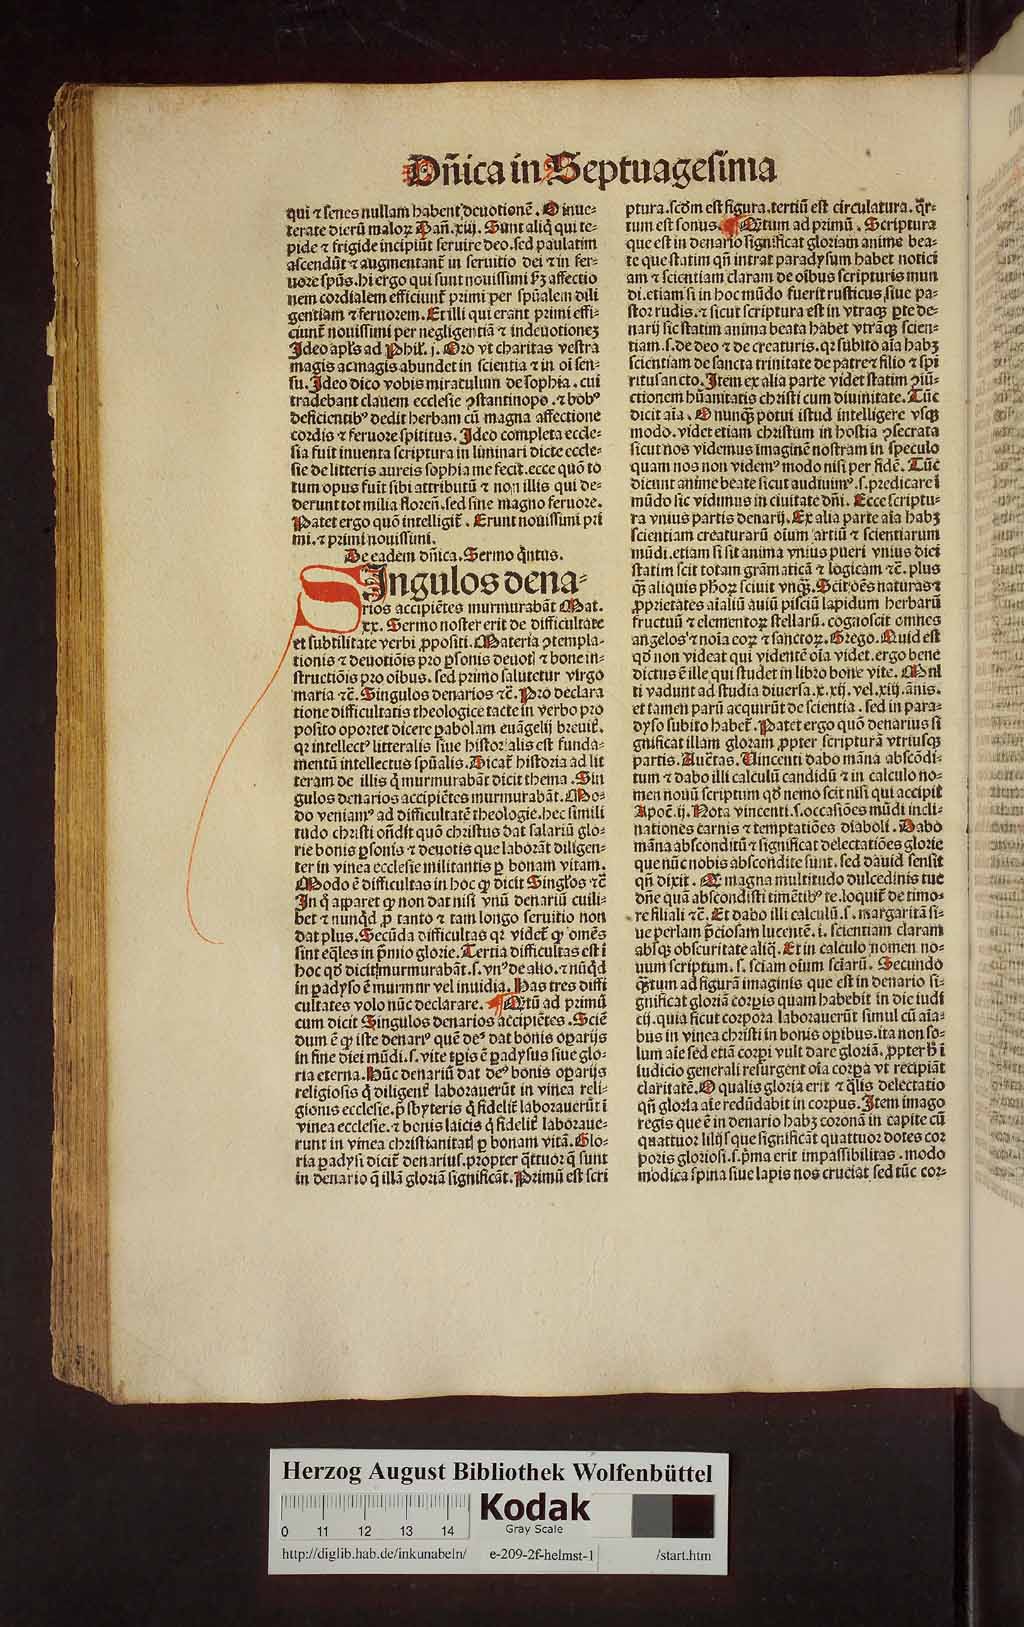 Dñica in Septuagesima
qui ⁊ senes nullam habent deuotionē. O inue-
terate dierū maloꝝ Dañ. xiij. Sunt aliq̄ qui te-
pide ⁊ frigide incipiūt seruire deo. sed paulatim
ascendūt ⁊ augmentant̄ in seruitio dei ⁊ in fer-
uore sp̄us. hi ergo qui sunt nouissimi ẜm affectio
nem cordialem efficiunt̄ primi per sp̄ualem dili
gentiam ⁊ feruorem. Et illi qui erant primi effi-
ciunt̄ nouissimi per negligentiā ⁊ indeuotionez
Ideo apl̄s ad Phil̄. j. Oro vt charitas vestra
magis ac magis abundet in scientia ⁊ in oī sen-
su. Ideo dico vobis miratulum de sophia. cui
tradebant clauem ecclesie ꝯstantinope. ⁊ bobꝰ
deficientibꝰ dedit herbam cū magna affectione
cordis ⁊ feruore spititus. Ideo completa eccle-
sia fuit inuenta scriptura in liminari dicte eccle-
sie de litteris aureis sophia me fecit. ecce quō to
tum opus fuit sibi attributū ⁊ non illis qui de-
derunt tot milia floreñ. sed sine magno feruore.
Patet ergo quō intelligit̄. Erunt nouissimi pri
mi. ⁊ primi nouissimi.
De eadem dñica. Sermo q̄ntus.
SIngulos dena-
rios accipiētes murmurabāt Mat.
xx. Sermo noster erit de difficultate
et subtilitate verbi ꝓpositi. Materia ꝯtempla-
tionis ⁊ deuotiōis pro ꝑsonis deuotꝭ ⁊ bone in-
structiōis pro oībus. sed primo salutetur virgo
maria ⁊c̄. Singulos denarios ⁊c̄. Pro declara
tione difficultatis theologice tacte in verbo pro
posito oportet dicere ꝑabolam euāgelij breuit̄.
qꝛ intellectꝰ litteralis siue historialis est funda-
mentū intellectus sp̄ualis. Dicat̄ historia ad lit
teram de illis q̄ murmurabāt dicit thema. Sin
gulos denarios accipiētes murmurabāt. Mo-
do veniamꝰ ad difficultatē theologie. hec simili
tudo christi oñdit quō christus dat salariū glo-
rie bonis ꝑsonis ⁊ deuotis que laborāt diligen-
ter in vinea ecclesie militantis ꝑ bonam vitam.
Modo ē difficultas in hoc ꝙ dicit Singl̄os ⁊c̄
In q̄ apparet ꝙ non dat nisi vnū denariū cuili-
bet ⁊ nunq̄d ꝓ tanto ⁊ tam longo seruitio non
dat plus. Secūda difficultas qꝛ videt̄ ꝙ omēs
sint eq̄les in p̄mio glorie. Tertia difficultas est ī
hoc qđ dicit̄ murmurabāt. s. vnꝰ de alio. ⁊ nūq̄d
in ꝑadyso ē murmur vel inuidia. Has tres diffi
cultates volo nūc declarare. ¶ Q̄tū ad primū
cum dicit Singulos denarios accipiētes. Sciē
dum ē ꝙ iste denariꝰ quē deꝰ dat bonis oꝑarijs
in fine diei mūdi. s. vite tp̄is ē ꝑadysus siue glo-
ria eterna. Hūc denariū dat deꝰ bonis oꝑarijs
religiosis q̄ diligent̄ laborauerūt in vinea reli-
gionis ecclesie. p̄sbyteris q̄ fidelit̄ laborauerūt ī
vinea ecclesie. ⁊ bonis laicis q̄ fidelit̄ laboraue-
runt in vinea christianitatꝭ ꝑ bonam vitā. Glo-
ria ꝑadysi dicit̄ denarius. propter q̄ttuor q̄ sunt
in denario q̄ illā gloriā significāt. Primū est scri
ptura. scđm est figura. tertiū est circulatura. q̄r-
tum est sonus. ¶ Q̄tum ad primū. Scriptura
que est in denario significat gloriam anime bea-
te que statim qñ intrat paradysum habet notici
am ⁊ scientiam claram de oībus scripturis mun
di. etiam si in hoc mūdo fuerit rusticus siue pa-
stor rudis. ⁊ sicut scriptura est in vtraqꝫ ꝑte de-
narij sic statim anima beata habet vtrāqꝫ scien-
tiam. s. de deo ⁊ de creaturis. qꝛ subito aīa habꝫ
scientiam de sancta trinitate de patre ⁊ filio ⁊ spī
ritusancto. Item ex alia parte videt statim ꝯiū-
ctionem hūanitatis christi cum diuinitate. Tūc
dicit aīa. O nunqꝫ potui istud intelligere vsqꝫ
modo. videt etiam christum in hostia ꝯsecrata
sicut nos videmus imaginē nostram in speculo
quam nos non videmꝰ modo nisi per fidē. Tūc
dicunt anime beate sicut audiuimꝰ. s. predicare ī
mūdo sic vidimus in ciuitate dñi. Ecce scriptu-
ra vnius partis denarij. Ex alia parte aīa habꝫ
scientiam creaturarū oīum artiū ⁊ scientiarum
mūdi. etiam si sit anima vnius pueri vnius diei
statim scit totam grāmaticā ⁊ logicam ⁊c̄. plus
qꝫ aliquis ph̄oꝝ sciuit vnqꝫ. Scit oēs naturas ⁊
ꝓprietates aīaliū auiū pisciū lapidum herbarū
fructuū ⁊ elementoꝝ stellarū. cognoscit omnes
angelos ⁊ noīa eoꝝ ⁊ sanctoꝝ. Grego. Quid est
qđ non videat qui vidētē oīa videt. ergo bene
dictus ē ille qui studet in libro bone vite. Mul
ti vadunt ad studia diuersa. x. xij. vel. xiij. ānis.
et tamen parū acquirūt de scientia. sed in para-
dyso subito habet̄. Patet ergo quō denarius si
gnificat illam gloram ꝓpter scripturā vtriusqꝫ
partis. Auc̄tas. Vincenti dabo māna abscōdi-
tum ⁊ dabo illi calculū candidū ⁊ in calculo no-
men nouū scriptum qđ nemo scit nisi qui accipit
Apoc̄. ij. Nota vincenti. s. occasiōes mūdi incli-
nationes carnis ⁊ temptatiōes diaboli. Dabo
māna absconditū ⁊ significat delectatiōes glorie
que nūc nobis abscondite sunt. sed dauid sensit
qñ dixit. Q̄ magna multitudo dulcedinis tue
dñe quā abscondisti timētibꝰ te. loquit̄ de timo-
re filiali ⁊c̄. Et dabo illi calculū. s. margaritā si-
ue perlam p̄ciosam lucentē. i. scientiam claram
absqꝫ obscuritate aliq̄. Et in calculo nomen no-
uum scriptum. s. sciam oīum sciarū. Secundo
q̄tum ad figurā imaginis que est in denario si-
gnificat gloriā corꝑis quam habebit in die iudi
cij. quia sicut corpora laborauerūt simul cū aīa-
bus in vinea christi in bonis oꝑibus. ita non so-
lum aīe sed etiā corꝑi vult dare gloriā. ꝓpter h̄ ī
iudicio generali resurgent oīa corꝑa vt recipiāt
claritatē. O qualis gloria erit ⁊ q̄lis delectatio
qñ gloria aīe redūdabit in corpus. Item imago
regis que ē in denario habꝫ coronā in capite cū
quattuor lilijs que significāt quattuor dotes cor
poris gloriosi. s. p̄ma erit impassibilitas. modo
modica spina siue lapis nos cruciat sed tūc cor-
Herzog August Bibliothek Wolfenbüttel
Kodak
Gray Scale
0 11 12 13 14
http://diglib.hab.de/inkunabeln/ e-209-2f-helmst-1 /start.htm